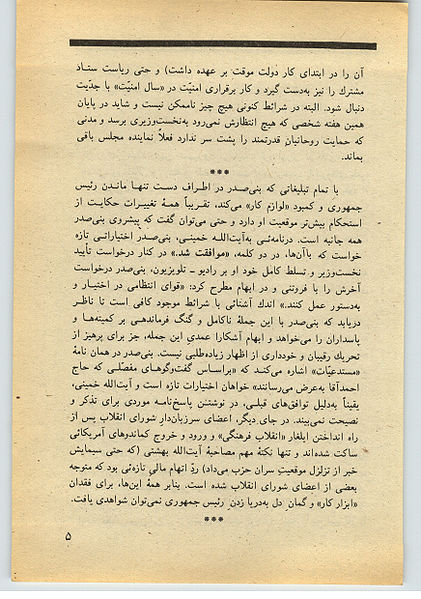 آن را در ابتدای کار دولت موقت بر عهده داشت) و حتی ریاست ستاد
مشترك را نیز به‌دست گیرد و کار برقراری امنیّت در «سال امنیّت» با جدّیت
دنبال شود. البته در شرائط کنونی هیچ چیز ناممکن نیست و شاید در پایان
همین هفته شخصی که هیچ انتظارش نمی‌رود به‌نخست‌وزیری برسد و مدنی
که حمایت روحانیان قدرتمند را پشت سر ندارد فعلاً نماینده مجلس باقی
بماند.
***
با تمام تبلیغاتی که بنی‌صدر در اطراف دست تنها ماندن رئیس
جمهوری و کمبود «لوازم کار» می‌کند، تقریباً همهٔ تغییرات حکایت از
استحکام بیش‌تر موقعیت او دارد و حتی می‌توان گفت که پیشروی بنی‌صدر
همه جانبه است. درنامه‌ئی به‌آیت‌اللـه خمینی، بنی‌صدر اختیاراتی تازه
خواست که باآن‌ها، در دو کلمه، «موافقت شد.» در کنار درخواست تأیید
نخست‌وزیر و تسلط کامل خود او بر رادیو ـ تلویزیون، بنی‌صدر درخواست
آخرش را با فروتنی و در ابهام مطرح کرد: «قوای انتظامی در اختیار و
به‌دستور عمل کنند.» اندك آشنائی با شرائط موجود کافی است تا ناظر
دریابد که بنی‌صدر با این جملهٔ ناکامل و گنگ فرماندهی بر کمیته‌ها و
پاسداران را می‌خواهد و ابهام آشکارا عمدیِ این جمله، جز برای پرهیز از
تحریك رقیبان و خودداری از اظهار زیاده‌طلبی نیست. بنی‌صدر در همان نامهٔ
«مستدعیّات» اشاره می‌کند که «براساس گفت‌وگوهای مفصّلی که حاج
احمدآقا به‌عرض می‌رسانند» خواهان اختیارات تازه است و آیت‌الله خمینی،
یقیناً به‌دلیل توافق‌های قبلی، در نوشتنن پاسخ‌نامه موردی برای تذکر و
نصیحت نمی‌بیند. در جای دیگر، اعضای سرزبان‌دار شورای انقلاب پس از
راه انداختن ایلغار «انقلاب فرهنگی» و ورود و خروج کماندوهای آمریکائی
ساکت شده‌اند و تنها نکتهٔ مهم مصاحبهٔ آیت‌الله بهشتی (که حتی سیمایش
خبر از تزلزل موقعیتِ سران حزب می‌داد) ردّ اتهام مالی تازه‌ئی بود که متوجه
بعضی از اعضای شورای انقلاب شده است. بنابر همهٔ این‌ها، برای فقدان
«ابزار کار» و گمانِ دل به‌دریا زدنِ رئیس جمهوری نمی‌توان شواهدی یافت.
***
۵